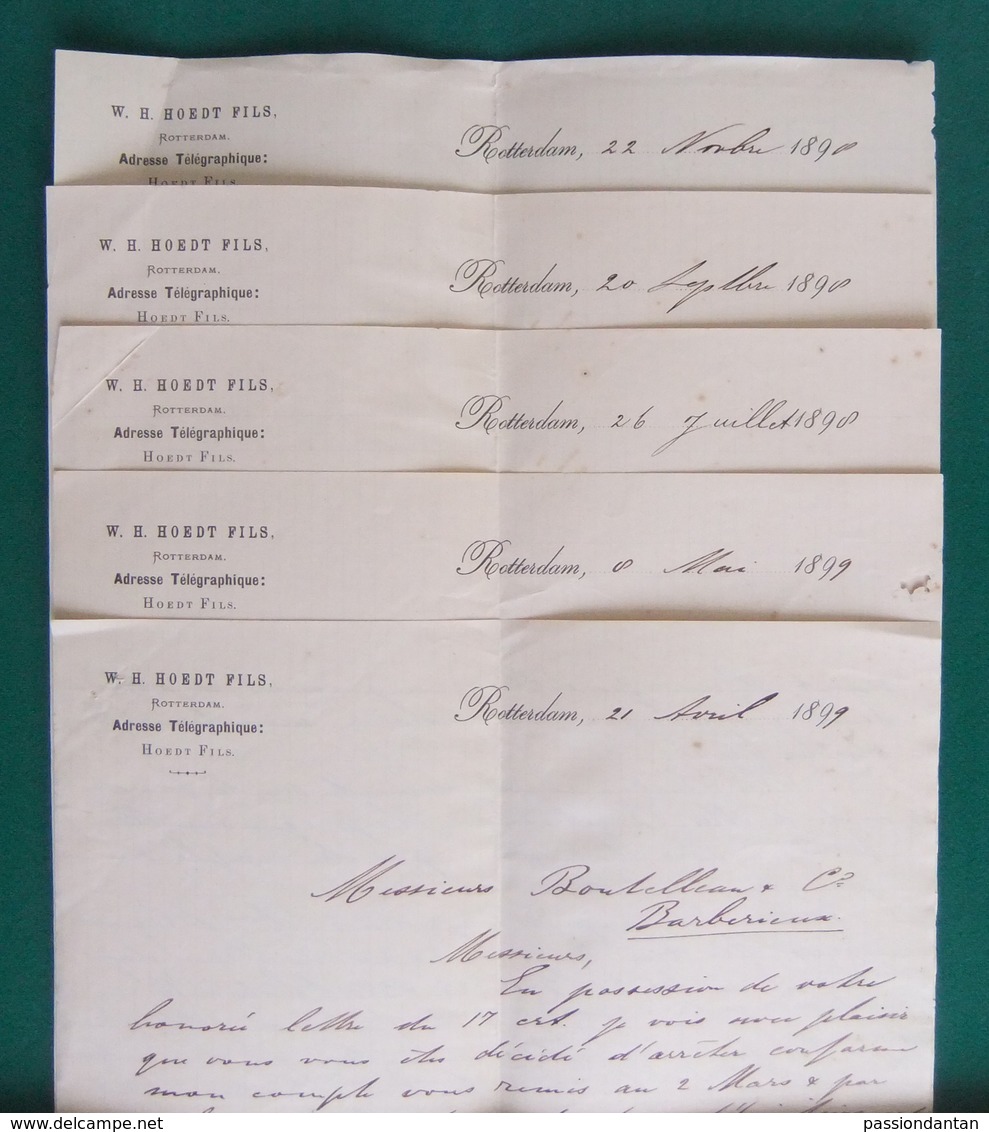 W. H. HOEDT FILS,
ROTTERDAM.
Adresse Télégraphique:
HOEDT FILS.
Rotterdam, 22 Novbre 1898
W. H. HOEDT FILS,
ROTTERDAM.
Adresse Télégraphique:
HOEDT FILS.
Rotterdam, 20 Septbre 1898
W. H. HOEDT FILS,
ROTTERDAM.
Adresse Télégraphique:
HOEDT FILS.
Rotterdam, 26 Juillet 1898
W. H. HOEDT FILS,
ROTTERDAM.
Adresse Télégraphique:
HOEDT FILS.
Rotterdam, 8 Mai 1899
W. H. HOEDT FILS,
ROTTERDAM.
Adresse Télégraphique:
HOEDT FILS.
Rotterdam, 21 Avril 1899
Messieurs Boutelleau & Co
Barberieux.
Messieurs,
En possession de votre
honorée lettre du 17 crt. je vois avec plaisir
que vous vous êtes décidé d'arrêter conforme
mon compte vous remis au 2 Mars & par
passiondantan